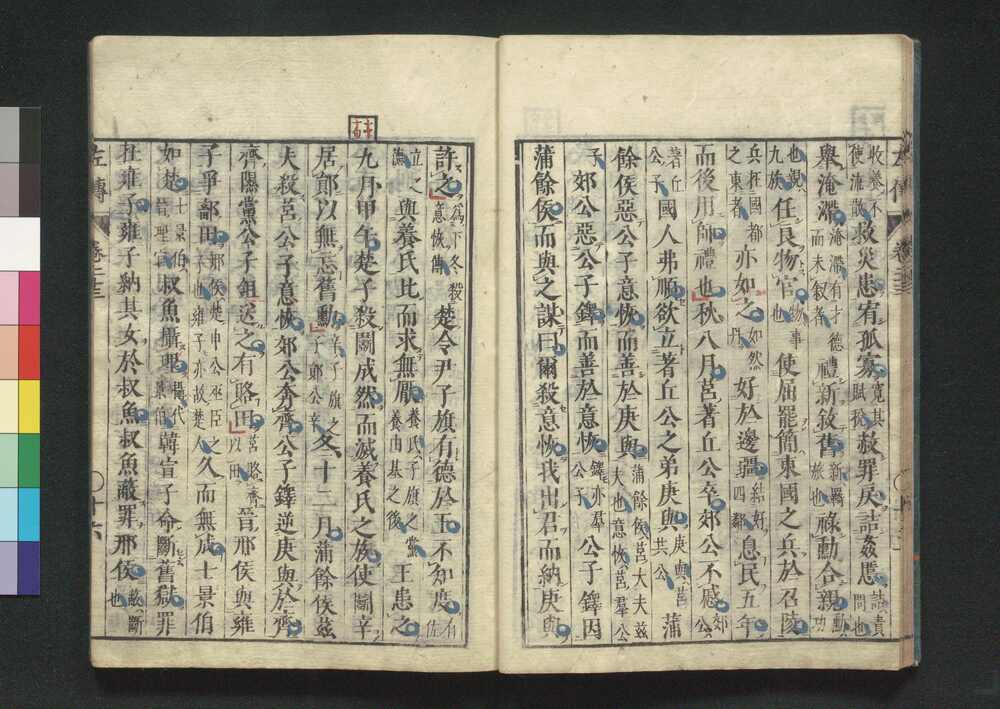 收養不
使流散救災患宥孤寡寬其
賦稅赦罪戾詰姦慝詰責
問也
舉淹滯淹滯有才德
而未叙者禮新敘舊新羈
旅也祿勳合親勳
功
也親
九族任良物官物事
也使屈罷簡東國之兵於召陵
兵在國都
之東者亦如之如然
丹好於邊疆結好
四鄰息民五年
而後用師禮也秋八月莒著丘公卒郊公不慼郊
公
著丘
公子國人弗順欲立著丘公之弟庚輿庚輿莒
共公蒲
餘侯惡公子意恢而善於庚輿蒲餘侯莒大夫兹
夫也意恢莒羣公
子郊公惡公子鐸而善於意恢鐸亦羣
公子公子鐸因
蒲餘侯而與之謀曰爾殺意恢我出君而納庚輿
許之爲下冬殺
意恢傳楚令尹子旗有德於王不知度有
佐
立之
德與養氏比而求無厭養氏子旗之黨
養由基之後王患之
九月甲午楚子殺鬭成然而滅養氏之族使鬭辛
居鄖以無忘舊勳辛子旗之
子鄖公辛冬十二月蒲餘侯兹
夫殺莒公子意恢郊公奔齊公子鐸逆庚輿於齊
齊隰黨公子鉏送之有賂田莒賂齊
以田晉邢侯與雍
子爭鄐田邢侯楚申公巫臣之
子也雍子亦故楚人久而無成士景伯
如楚士景伯
晉理官叔魚攝理攝代
景伯韓宣子命斷舊獄罪
在雍子雍子納其女於叔魚叔魚蔽罪邢侯蔽斷
也
左傳 卷二十三 十六